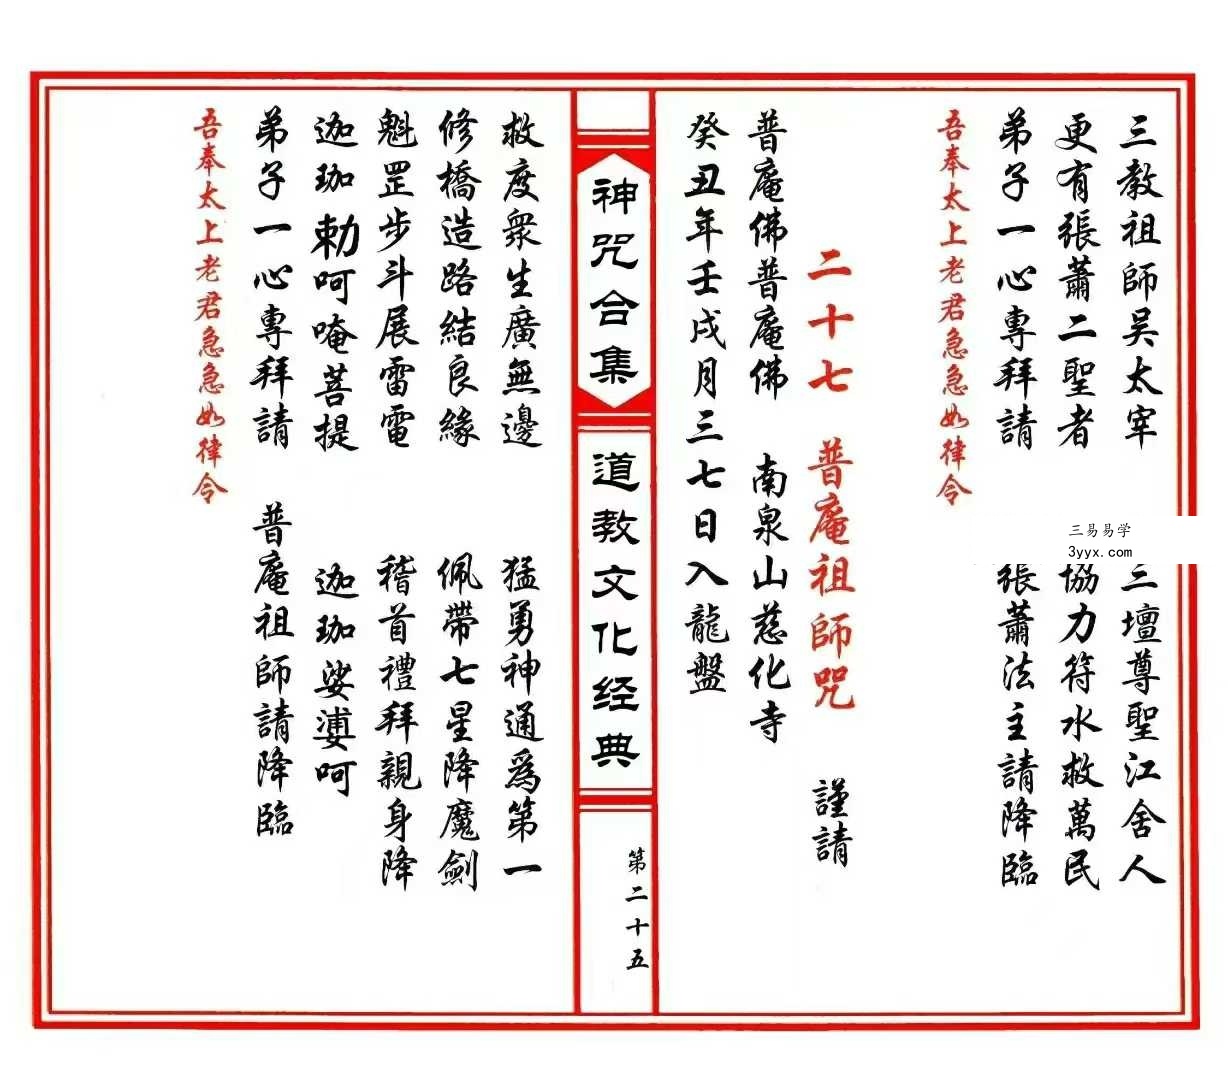 三教祖師吴太宰 三壇尊聖江舍人
更有張蕭二聖者 協力符水救萬民
弟子一心專拜請 張蕭法主請降臨
吾奉太上老君急急如律令
二十七 普庵祖師咒 謹請
普庵佛普庵佛 南泉山慈化寺
癸丑年壬戌月三七日入龍盤
神咒合集
道教文化经典
第二十五
救度衆生廣無邊 猛勇神通爲第一
修橋造路結良緣 佩帶七星降魔劍
魁罡步斗展雷電 稽首禮拜親身降
迦珈勅呵唵菩提 迦珈娑婆呵
弟子一心專拜請 普庵祖師請降臨
吾奉太上老君急急如律令
三易易学
3yyx.com